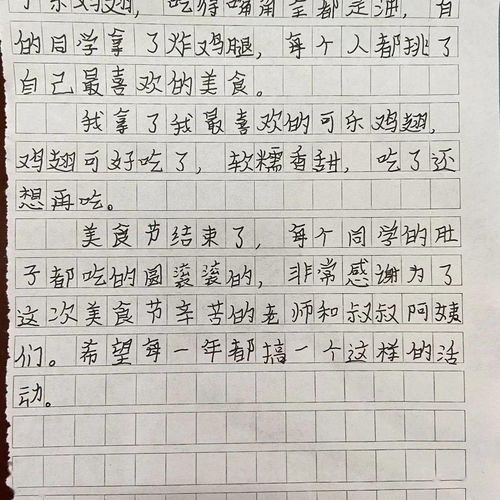 了乐鸡翅，吃得嘴角全都是油，有
的同学拿了炸鸡腿，每个人都挑了
自己最喜欢的美食。
我拿了我最喜欢的可乐鸡翅，
鸡翅可好吃了，软糯香甜，吃了还
想再吃。
美食节结束了，每个同学的肚
子都吃的圆滚滚的，非常感谢为了
这次美食节辛苦的老师和叔叔阿姨
们。希望每一年都搞一个这样的活
动。